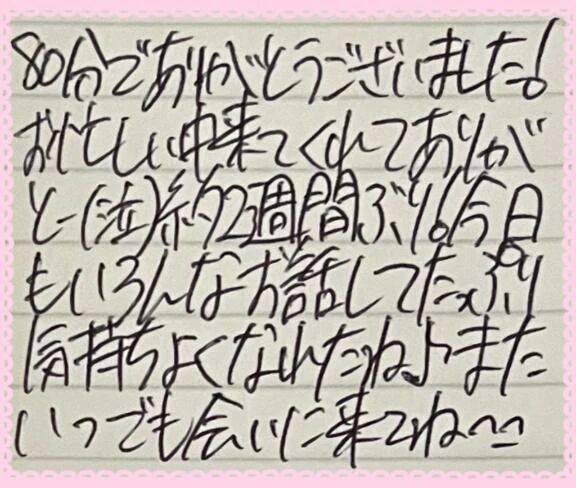 80分でありがとうございました!
お忙しい中来てくれてありが
とー(泣)約2週間ぶり!今日
もいろんなお話してたっぷり
気持ちよくなれたね♪また
いつでも会いに来てね〜